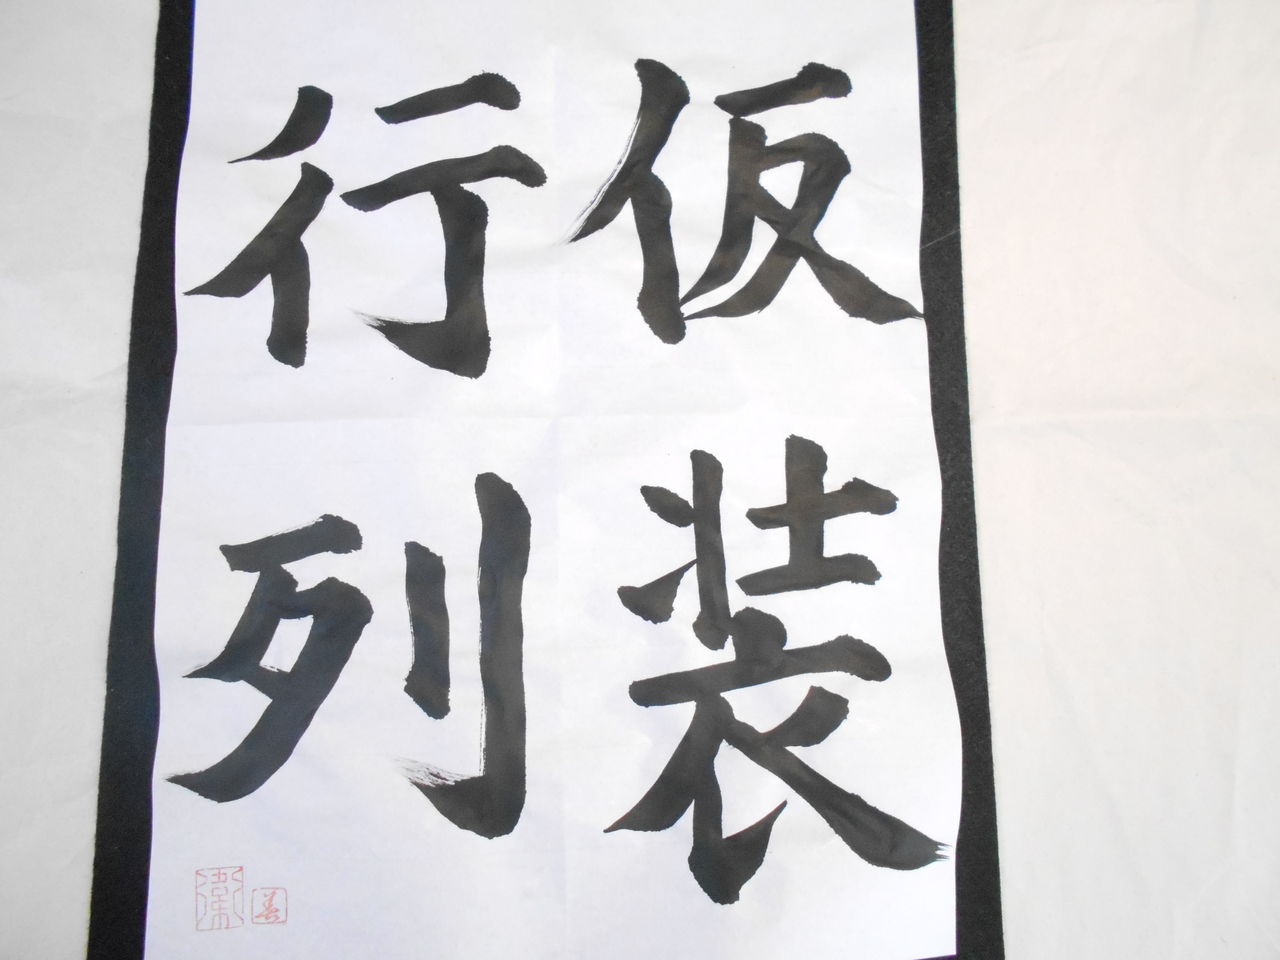 仮装
行列